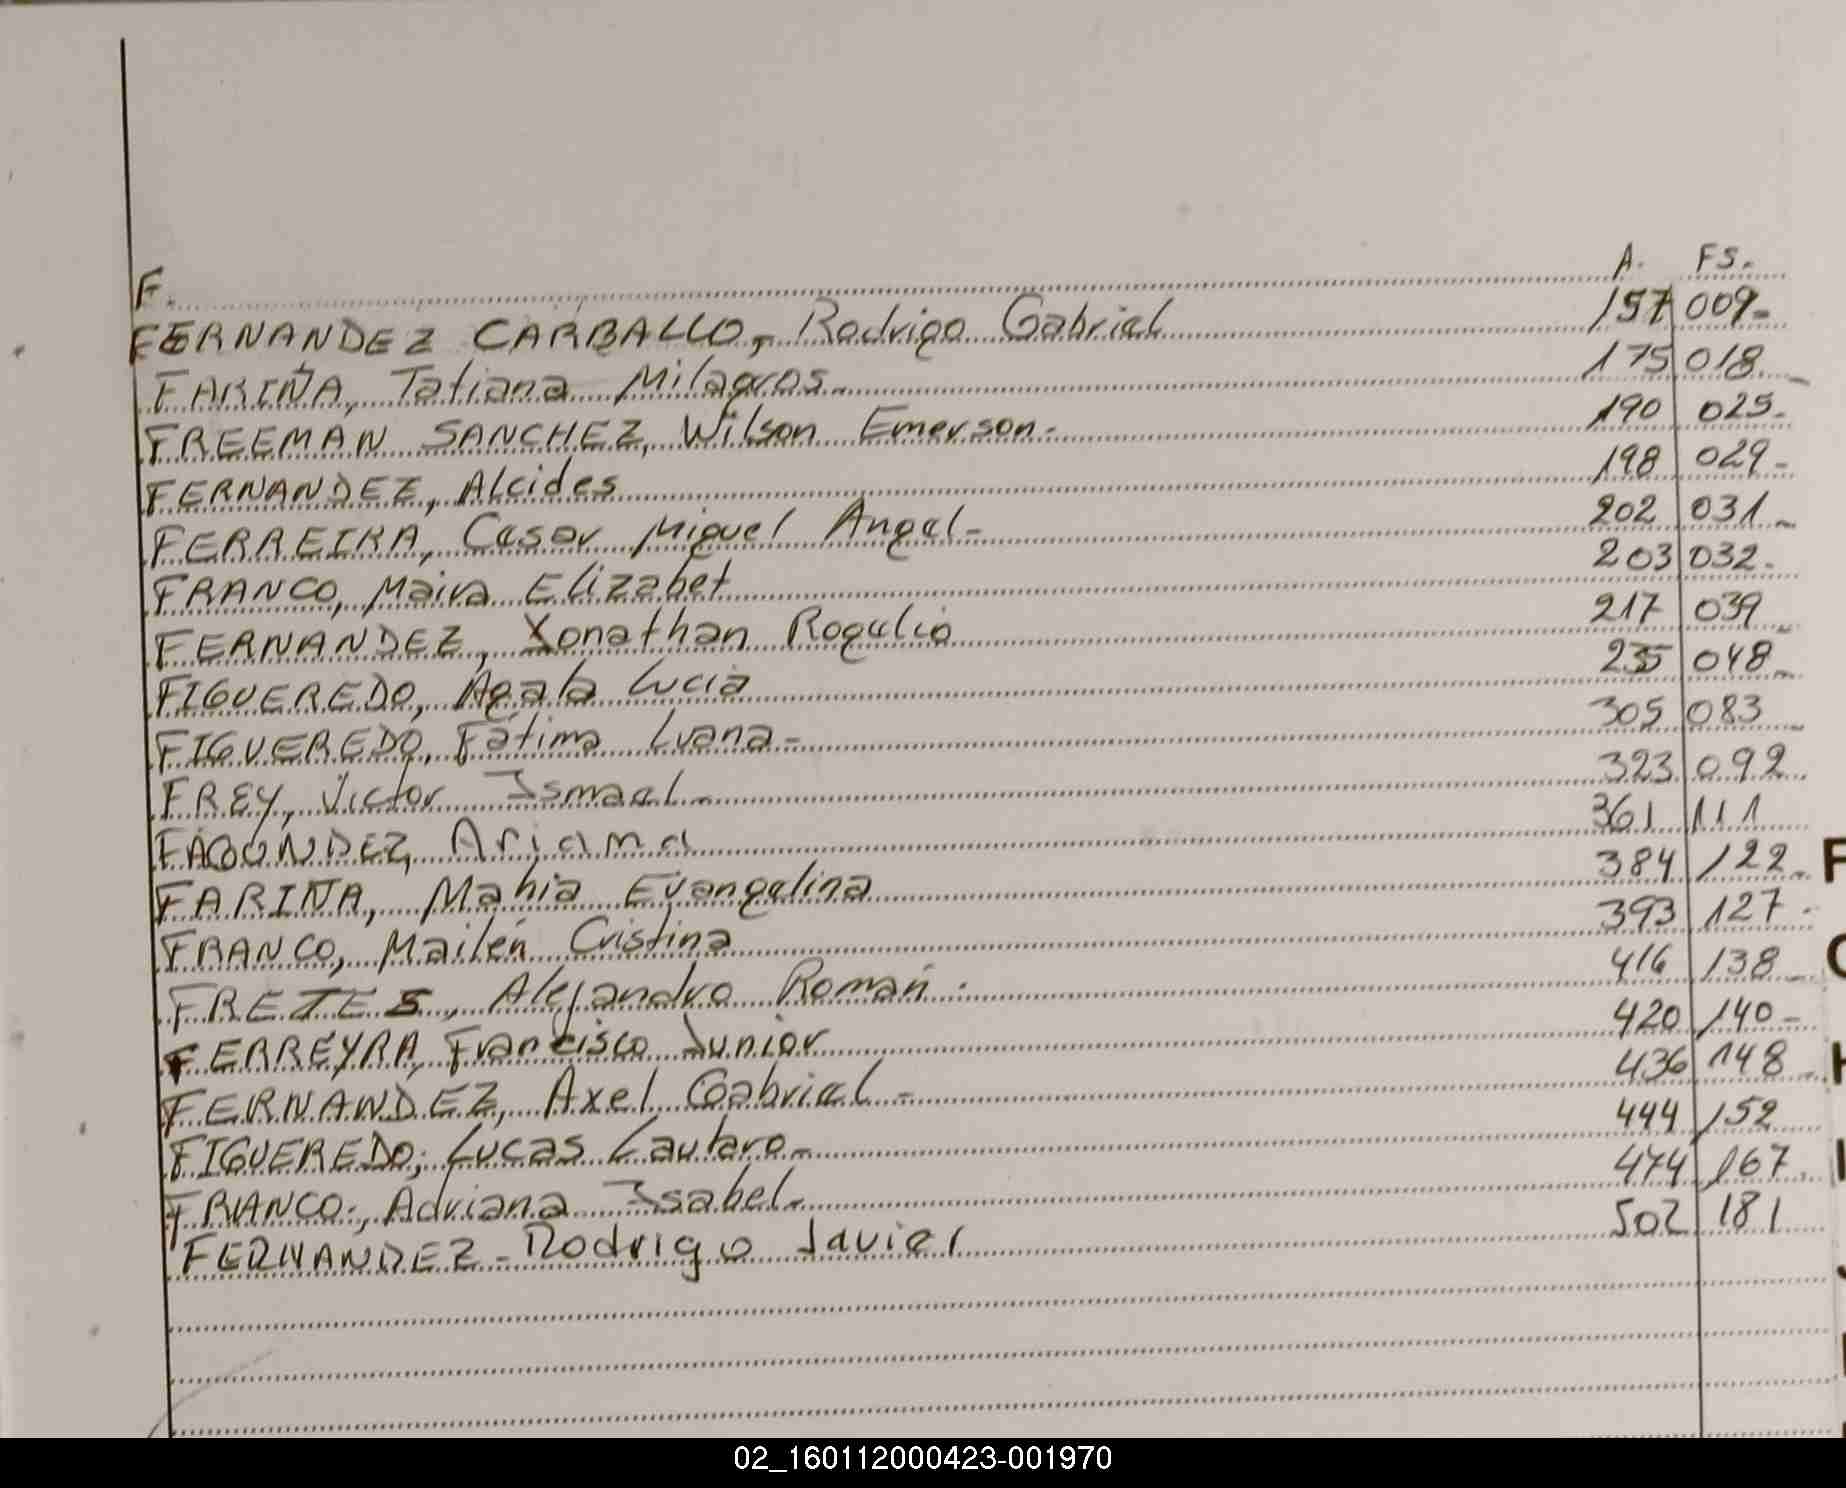 F. A. FS.
FERNANDEZ CARBALLO, Rodrigo Gabriel 157 009-
FARIÑA, Tatiana Milagros. 175 018
FREEMAN SANCHEZ, Wilson Emerson. 190 025.
FERNANDEZ, Alcides 198 029-
FERREIRA, Cesar Miguel Angel- 202 031-
FRANCO, Maira Elizabet 203 032.
FERNANDEZ, Xonathan Rogelio 217 039
FIGUEREDO, Agata Lucia 235 048-
FIGUEREDO, Fátima Luana- 305 083-
FREY, Victor Ismael. 323 092.
FAGUNDEZ, Ariama 361 111
FARIÑA, Mahia Evangelina 384 122.
FRANCO, Mailén Cristina 393 127.
FRETES, Alejandro Román. 416 138
FERREYRA, Francisco Junior 420 140-
FERNANDEZ, Axel Gabriel- 436 148
FIGUEREDO, Lucas Lautaro- 444 152
FRANCO., Adriana Isabel. 474 167.
FERNANDEZ-Rodrigo Javier 502 181
F
H
I
02_160112000423-001970